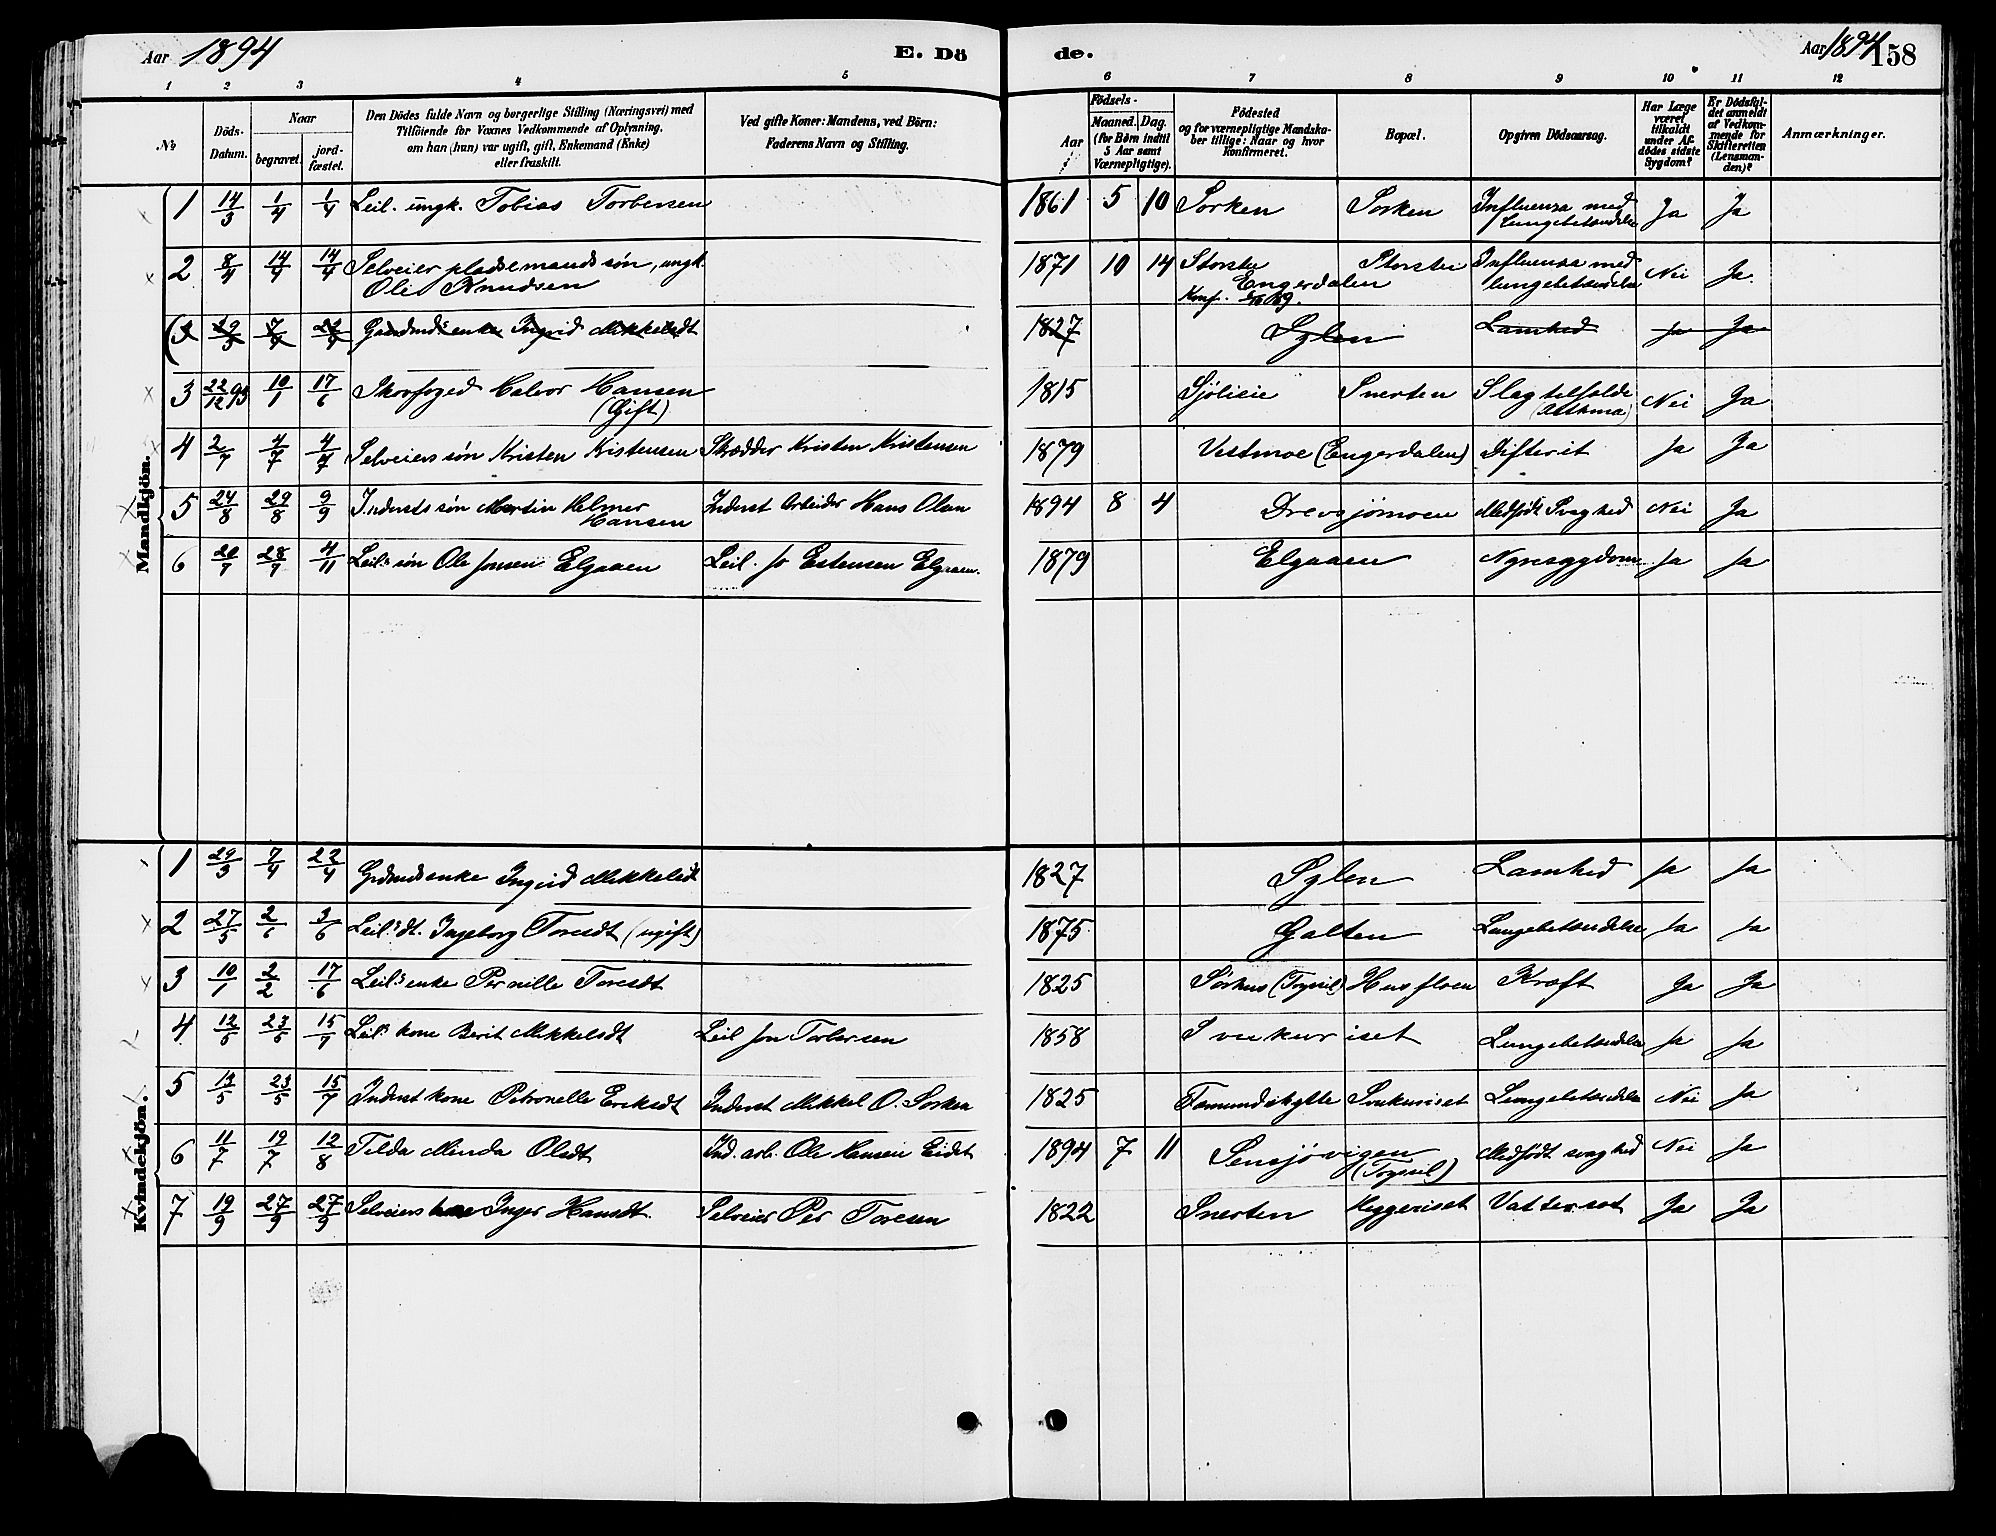 Aar 1894 E. Dö de. Aar 1894 158
1 2 3 4 5 6 7 8 9 10 11 12
№
Döds-Datum.
Naar
begravet.
jord-fæstet.
Den Dödes fulde Navn og borgerlige Stilling (Næringsvei) med
Tilföiende for Voxnes Vedkommende af Oplysning,
om han (hun) var ugift, gift, Enkemand (Enke)
eller fraskilt.
Ved gifte Koner: Mandens, ved Börn:
Faderens Navn og Stilling.
Födsels-
Aar
Maaned. Dag.
(for Börn indtil
5 Aar samt
Værnepligtige).
Födested
og for værnepligtige Mandska-
ber tillige: Naar og hvor
Konfirmeret.
Bopæl.
Opgiven Dödsaarsag.
Har Læge
været
tilkaldt
under Af-
dödes sidste
Sygdom?
Er Dödsfal-
det anmeldt
af Vedkom-
mende for
Skifteretten
(Lensman-
den)?
Anmærkninger.
Mandkjön.
1 14/3 1/4 1/4 Leil. ungk. Tobias Torbersen 1861 5 10 Sorken Sorken Influenza med Lungebetændelse Ja Ja
2 8/4 14/4 14/4 Selveier pladsemands søn, ungk. Ole Knudsen 1871 10 14 Storsten Engerdalen Konf. Storsten Influenza med lungebetændelse Nei Ja
(3 29/3 7/4 22/4 Grdmdsenke Ingrid Mikkelsdt 1827 Sylen Lamhed Ja Ja
3 22/12 93 10/1 17/6 Skovfoged Halvor Hansen (Gift) 1815 Sjölisie Snerten Slagtilfælde (Asthma) Nei Ja
4 2/7 4/7 4/7 Selveiers søn Kristen Kristensen Skrædder Kristen Kristensen 1879 Vestmoe (Engerdalen) Difterit Ja Ja
5 24/8 29/8 9/9 Inderst søn Martin Helmer Hansen Inderst Arbeider Hans Olsen 1894 8 4 Drevsjömoen Medfødt Svaghed Nei Ja
6 20/7 28/7 4/11 Leil.s søn Ole Jonsen Elgaaen Leil. Jo Estensen Elgaaen. 1879 Elgaaen Nyresygdom Ja Ja
Kvindekjön.
1 29/3 7/4 22/4 Grdmdsenke Ingrid Mikkelsdt 1827 Sylen Lamhed Ja Ja
2 27/5 2/6 3/6 Leil.s dt. Ingeborg Toresdt (ugift) 1875 Galten Lungebetændelse Ja Ja
3 10/1 2/2 17/6 Leil.s enke Pernille Toresdt 1825 Sörhus (Trysil) Husfloen Kræft Ja Ja
4 12/5 23/5 15/7 Leil.s kone Berit Mikkelsdt Leil Jon Torbersen 1858 Svukuriset Lungebetændelse Ja Ja
5 13/5 23/5 15/7 Inderst kone Petronelle Eriksdt Inderst Mikkel O. Sorken 1825 Fæmundshytte Svukuriset Lungebetændelse Nei Ja
6 11/7 19/7 12/8 Tilda Minda Olsdt Ind. arb. Ole Hansen Eidet 1894 7 11 Sensjövigen (Trysil) Medfødt svaghed Nei Ja
7 19/9 27/9 27/9 Selveiers kone Inger Hansdt. Selveier Per Toresen 1822 Snerten Heggeriset Vattersot Ja Ja